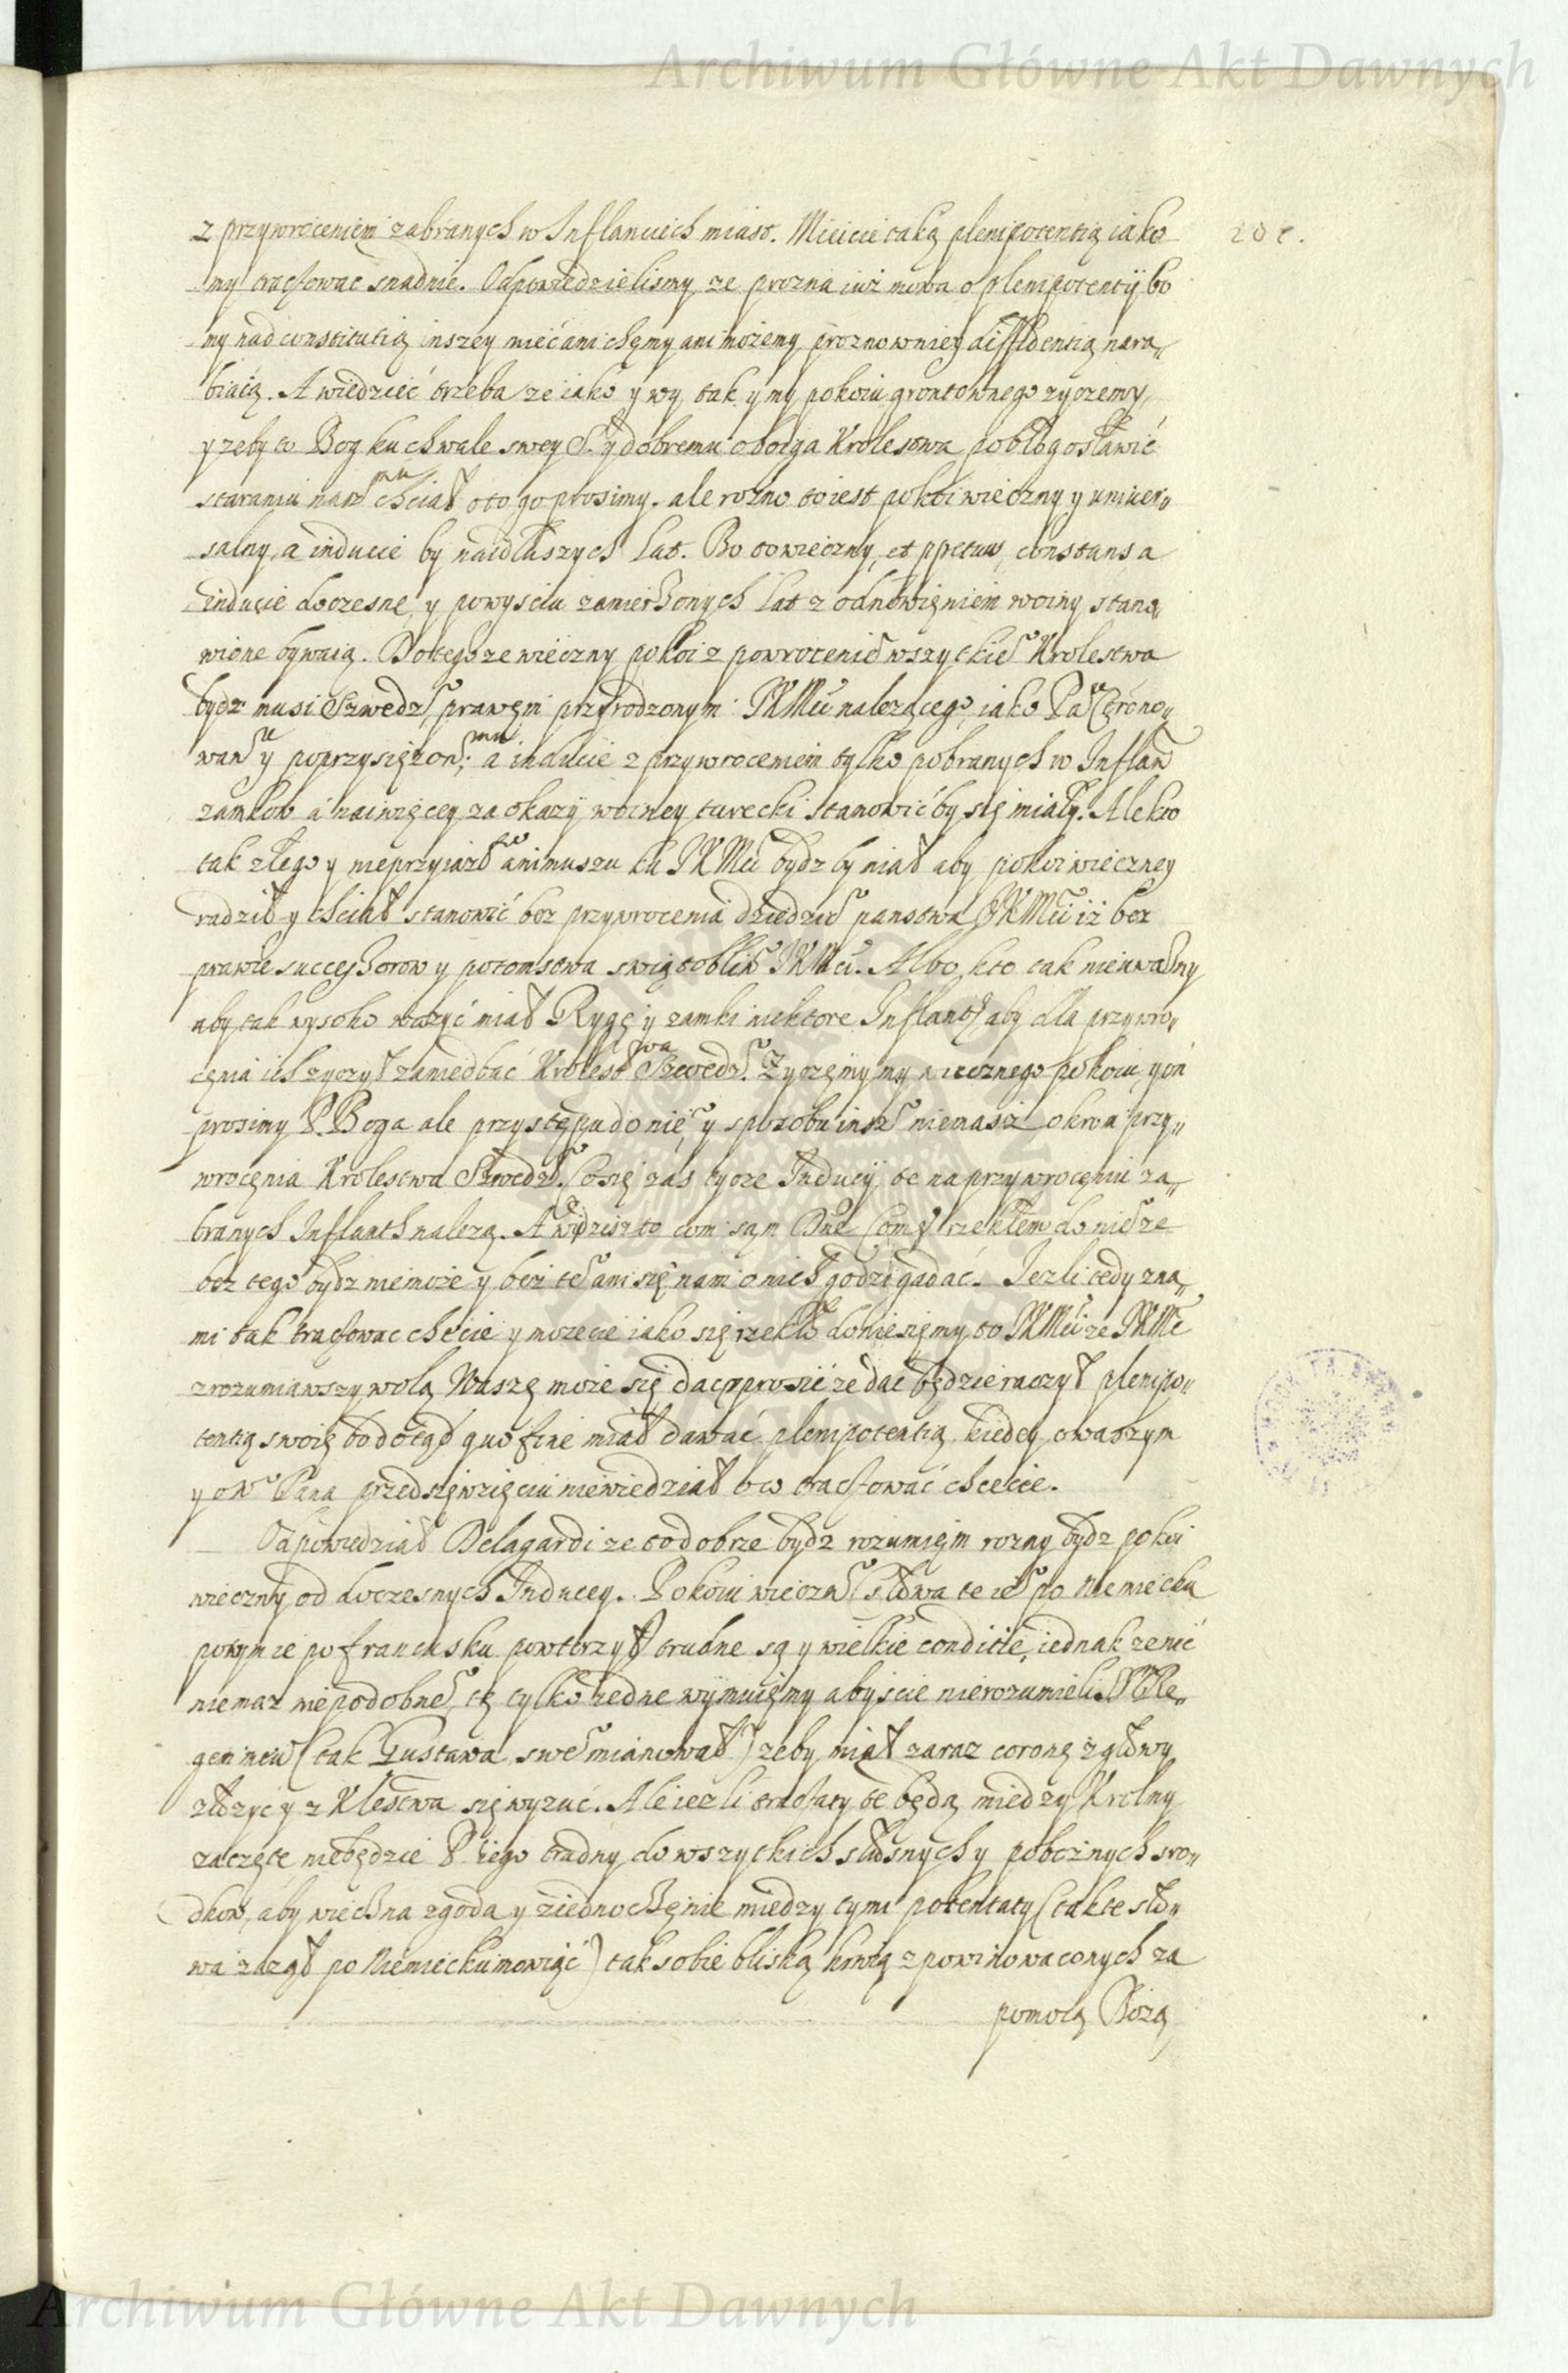 Archiwum Główne Akt Dawnych
z przywroceniem zabranych w Inflanciech miast. Mieicie taką plenipotentią iako 201.
my tractowac snadnie. Odpowiedzielismy ze prozna iuż mowa o plenipotentÿ bo
my nad constitutią inszey mieć ani chęmy ani możemy prozno w niey diffidentią nara„
biaią. A wiedzieć trzeba ze iako y wy tak y my pokoiu grontownego zyczemy,
y zeby to Bog ku chwale swey S. y dobremu oboyga Krolestwa pobłogosławić
staraniu nasz^mu chciał o to go prosimy. ale rozno to iest pokoi wieczny y uniuer„
salny, a inducie by naidłuszych lat. Bo to wieczny, et ppetuus, constans a
inducie doczesne, y powysciu zamierzonych lat z odnowięniem woiny stano„
wione bywaią. Do tego ze wieczny pokoi z powrocenie wszytkie° Krolestwa
bydz musi Szwedz° prawęm przyrodzonym JKMci nalezącego, iako Pa^u Coronow„
wan^u y poprzysiężon^mu; a inducie z przywroceniem tylko pobranych w Inflan
zamkow a naiwięcey za okazÿ woiney turecki stanowić by się miały. Ale kto
tak złego y nieprzyiazł^go animuszu ku JKMci bydz by miał aby pokoi wieczney
radził y chciał stanowić bez przywrocenia dziedziz° panstwa JKMci iż bez
prawie successorow y potomstwa swiętobliw° JKMci. Albo kto tak nieuważny
aby tak wysoko ważyć miał Rygę y zamki niektore Inflant aby dla przywro„
cęnia ich zyczył zaniedbać Krolest^wa Szwedz°. Zyczęmy my wiecznego pokoiu y oń
prosimy P. Boga ale przystępu do nie° y sposobu insz° niemasz okrom przy„
wrocęnia Krolestwa Szwedz°. Co się zas tycze Inducÿ te na przywrocęniu za„
branych Inflanth nalezą. A widzisz to com sąm Dne Comes rzekłem do nie° ze
bez tego bydz niemoże y bez te° ani się nam o nich godzi gadać. Iezli tedy zna„
mi tak tractowac chcecie y mozecie iako się rzekło doniesięmy to JKMci ze JKMć
zrozumiawszy wolą Waszę moie się dacprosić ze dać będzie raczył plenipo„
tentią swoię bo dotąd quo fine miał dawać plenipotentią kiedey o waszym
y ow° Pana przedsięwzięciu niewiedział o co tractować chcecie.
Odpowiedział Delagardi ze to dobrze bydz rozumięm rozny bydz pokoi
wieczny od doczesnych Inducey. Pokoiu wieczn° (słowa te ie° po Niemiecku
potym ie po francusku powtorzył) trudne są y wielkie conditie, iednak ze nić
niemaz niepodobne°, tę tylko iedne wÿmuięmy abyscie nierozumieli. P. Re„
gentmeu (tak Gustawa swe° mianował) zeby miał zaraz coronę zgłowy
złozyć y z Klestwa się wyzuć. Ale iezli tractaty te będą między Krolmy
zaczęte niebędzie P. iego trudny do wszyckich słusnych y pobożnych sro„
dkow, aby wiechna zgoda y ziednoczęnie miedzy tymi potentaty (tak te sło„
wa zaczął po Niemiecku mowiąć) tak sobie bliską krwią zpowinowaconych za
pomocą Bożą
Archiwum Główne Akt Dawnych